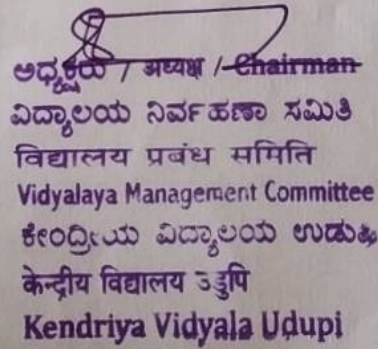 ಅಧ್ಯಕ್ಷರು / अध्यक्ष / Chairman
ವಿದ್ಯಾಲಯ ನಿರ್ವಹಣಾ ಸಮಿತಿ
विद्यालय प्रबंध समिति
Vidyalaya Management Committee
ಕೇಂದ್ರೀಯ ವಿದ್ಯಾಲಯ ಉಡುಪಿ
केन्द्रीय विद्यालय उडुपि
Kendriya Vidyala Udupi